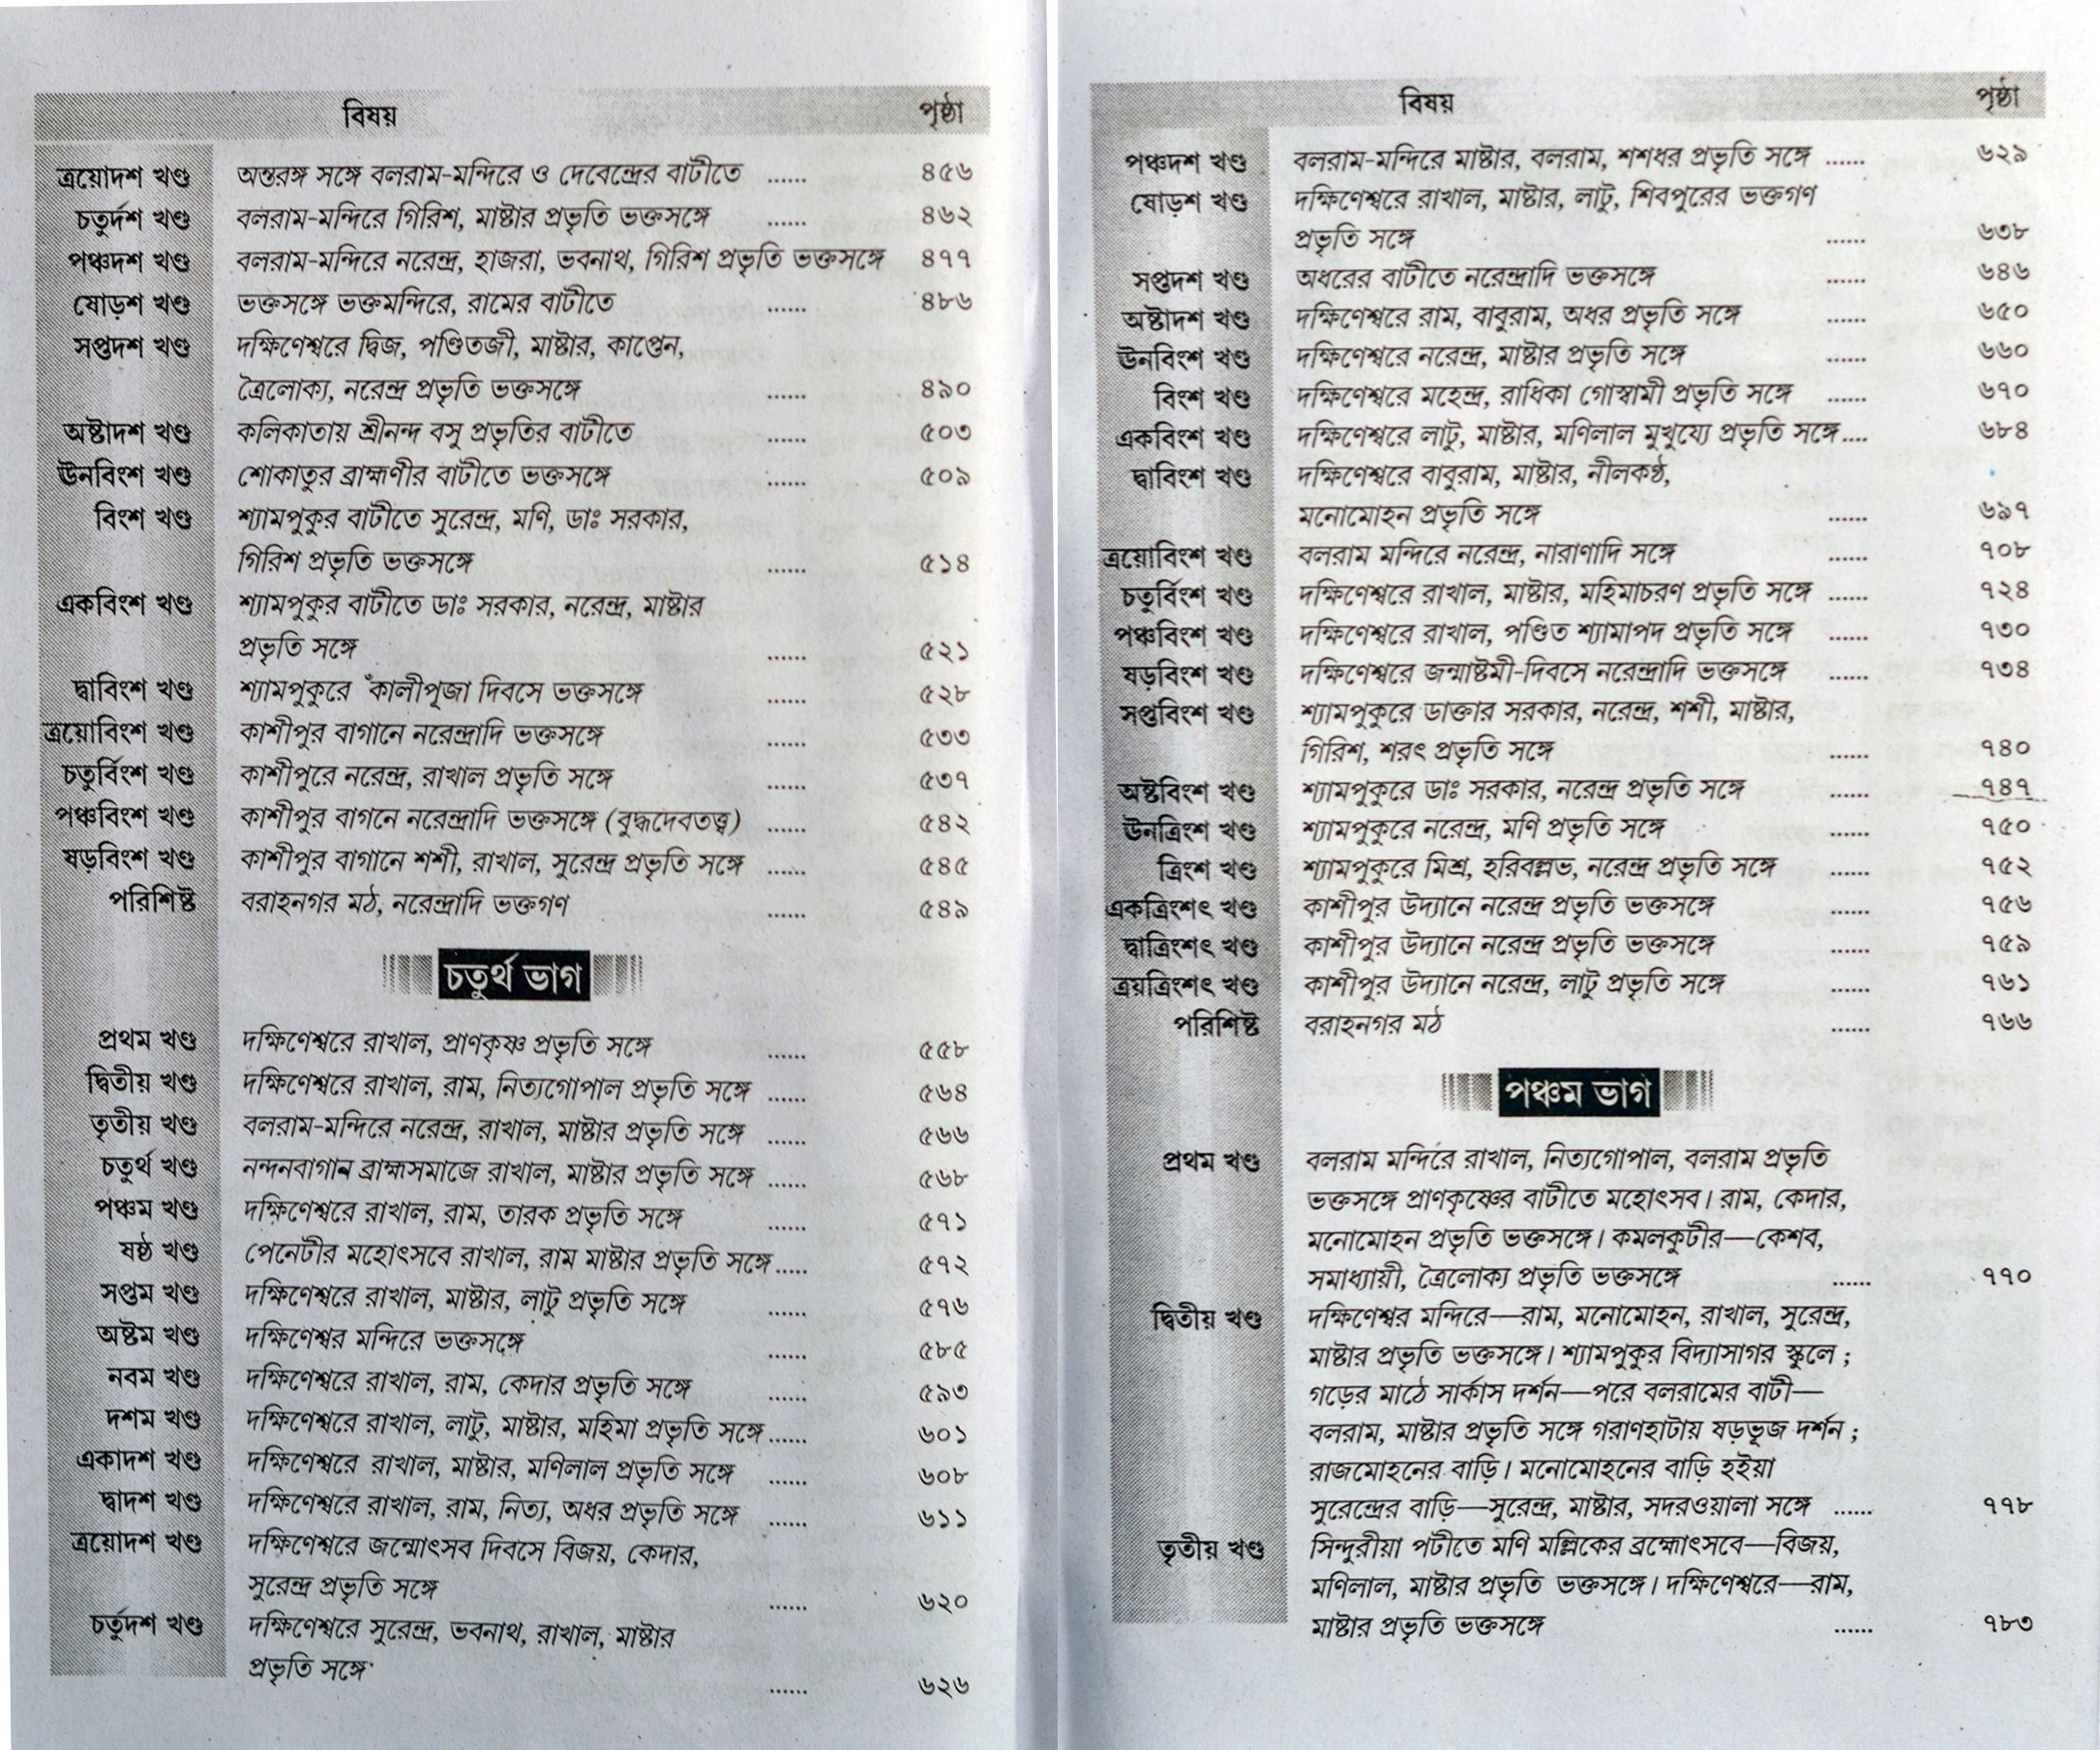 বিষয় পৃষ্ঠা
ত্রয়োদশ খণ্ড অন্তরঙ্গ সঙ্গে বলরাম-মন্দিরে ও দেবেন্দ্রের বাটীতে ...... ৪৫৬
চতুর্দশ খণ্ড বলরাম-মন্দিরে গিরিশ, মাষ্টার প্রভৃতি ভক্তসঙ্গে ...... ৪৬২
পঞ্চদশ খণ্ড বলরাম-মন্দিরে নরেন্দ্র, হাজরা, ভবনাথ, গিরিশ প্রভৃতি ভক্তসঙ্গে ৪৭৭
ষোড়শ খণ্ড ভক্তসঙ্গে ভক্তমন্দিরে, রামের বাটীতে ...... ৪৮৬
সপ্তদশ খণ্ড দক্ষিণেশ্বরে দ্বিজ, পণ্ডিতজী, মাষ্টার, কাপ্তেন,
ত্রৈলোক্য, নরেন্দ্র প্রভৃতি ভক্তসঙ্গে ...... ৪৯০
অষ্টাদশ খণ্ড কলিকাতায় শ্রীনন্দ বসু প্রভৃতির বাটীতে ...... ৫০৩
ঊনবিংশ খণ্ড শোকাতুর ব্রাহ্মণীর বাটীতে ভক্তসঙ্গে ...... ৫০৯
বিংশ খণ্ড শ্যামপুকুর বাটীতে সুরেন্দ্র, মণি, ডাঃ সরকার,
গিরিশ প্রভৃতি ভক্তসঙ্গে ...... ৫১৪
একবিংশ খণ্ড শ্যামপুকুর বাটীতে ডাঃ সরকার, নরেন্দ্র, মাষ্টার
প্রভৃতি সঙ্গে ...... ৫২১
দ্বাবিংশ খণ্ড শ্যামপুকুরে ঁকালীপূজা দিবসে ভক্তসঙ্গে ...... ৫২৮
ত্রয়োবিংশ খণ্ড কাশীপুর বাগানে নরেন্দ্রাদি ভক্তসঙ্গে ...... ৫৩৩
চতুর্বিংশ খণ্ড কাশীপুরে নরেন্দ্র, রাখাল প্রভৃতি সঙ্গে ...... ৫৩৭
পঞ্চবিংশ খণ্ড কাশীপুর বাগনে নরেন্দ্রাদি ভক্তসঙ্গে (বুদ্ধদেবতত্ত্ব) ...... ৫৪২
ষড়বিংশ খণ্ড কাশীপুর বাগানে শশী, রাখাল, সুরেন্দ্র প্রভৃতি সঙ্গে ...... ৫৪৫
পরিশিষ্ট বরাহনগর মঠ, নরেন্দ্রাদি ভক্তগণ ...... ৫৪৯
চতুর্থ ভাগ
প্রথম খণ্ড দক্ষিণেশ্বরে রাখাল, প্রাণকৃষ্ণ প্রভৃতি সঙ্গে ...... ৫৫৮
দ্বিতীয় খণ্ড দক্ষিণেশ্বরে রাখাল, রাম, নিত্যগোপাল প্রভৃতি সঙ্গে ...... ৫৬৪
তৃতীয় খণ্ড বলরাম-মন্দিরে নরেন্দ্র, রাখাল, মাষ্টার প্রভৃতি সঙ্গে ...... ৫৬৬
চতুর্থ খণ্ড নন্দনবাগান ব্রাহ্মসমাজে রাখাল, মাষ্টার প্রভৃতি সঙ্গে ...... ৫৬৮
পঞ্চম খণ্ড দক্ষিণেশ্বরে রাখাল, রাম, তারক প্রভৃতি সঙ্গে ...... ৫৭১
ষষ্ঠ খণ্ড পেনেটীর মহোৎসবে রাখাল, রাম মাষ্টার প্রভৃতি সঙ্গে..... ৫৭২
সপ্তম খণ্ড দক্ষিণেশ্বরে রাখাল, মাষ্টার, লাটু প্রভৃতি সঙ্গে ...... ৫৭৬
অষ্টম খণ্ড দক্ষিণেশ্বর মন্দিরে ভক্তসঙ্গে ...... ৫৮৫
নবম খণ্ড দক্ষিণেশ্বরে রাখাল, রাম, কেদার প্রভৃতি সঙ্গে ...... ৫৯৩
দশম খণ্ড দক্ষিণেশ্বরে রাখাল, লাটু, মাষ্টার, মহিমা প্রভৃতি সঙ্গে...... ৬০১
একাদশ খণ্ড দক্ষিণেশ্বরে রাখাল, মাষ্টার, মণিলাল প্রভৃতি সঙ্গে ...... ৬০৮
দ্বাদশ খণ্ড দক্ষিণেশ্বরে রাখাল, রাম, নিত্য, অধর প্রভৃতি সঙ্গে ...... ৬১১
ত্রয়োদশ খণ্ড দক্ষিণেশ্বরে জন্মোৎসব দিবসে বিজয়, কেদার,
সুরেন্দ্র প্রভৃতি সঙ্গে ...... ৬২০
চর্তুদশ খণ্ড দক্ষিণেশ্বরে সুরেন্দ্র, ভবনাথ, রাখাল, মাষ্টার
প্রভৃতি সঙ্গে ...... ৬২৬
বিষয় পৃষ্ঠা
পঞ্চদশ খণ্ড বলরাম-মন্দিরে মাষ্টার, বলরাম, শশধর প্রভৃতি সঙ্গে ...... ৬২৯
ষোড়শ খণ্ড দক্ষিণেশ্বরে রাখাল, মাষ্টার, লাটু, শিবপুরের ভক্তগণ
প্রভৃতি সঙ্গে ...... ৬৩৮
সপ্তদশ খণ্ড অধরের বাটীতে নরেন্দ্রাদি ভক্তসঙ্গে ...... ৬৪৬
অষ্টাদশ খণ্ড দক্ষিণেশ্বরে রাম, বাবুরাম, অধর প্রভৃতি সঙ্গে ...... ৬৫০
ঊনবিংশ খণ্ড দক্ষিণেশ্বরে নরেন্দ্র, মাষ্টার প্রভৃতি সঙ্গে ...... ৬৬০
বিংশ খণ্ড দক্ষিণেশ্বরে মহেন্দ্র, রাধিকা গোস্বামী প্রভৃতি সঙ্গে ...... ৬৭০
একবিংশ খণ্ড দক্ষিণেশ্বরে লাটু, মাষ্টার, মণিলাল মুখুয্যে প্রভৃতি সঙ্গে.... ৬৮৪
দ্বাবিংশ খণ্ড দক্ষিণেশ্বরে বাবুরাম, মাষ্টার, নীলকণ্ঠ,
মনোমোহন প্রভৃতি সঙ্গে ...... ৬৯৭
ত্রয়োবিংশ খণ্ড বলরাম মন্দিরে নরেন্দ্র, নারাণাদি সঙ্গে ...... ৭০৮
চতুর্বিংশ খণ্ড দক্ষিণেশ্বরে রাখাল, মাষ্টার, মহিমাচরণ প্রভৃতি সঙ্গে ...... ৭২৪
পঞ্চবিংশ খণ্ড দক্ষিণেশ্বরে রাখাল, পণ্ডিত শ্যামাপদ প্রভৃতি সঙ্গে ...... ৭৩০
ষড়বিংশ খণ্ড দক্ষিণেশ্বরে জন্মাষ্টমী-দিবসে নরেন্দ্রাদি ভক্তসঙ্গে ...... ৭৩৪
সপ্তবিংশ খণ্ড শ্যামপুকুরে ডাক্তার সরকার, নরেন্দ্র, শশী, মাষ্টার,
গিরিশ, শরৎ প্রভৃতি সঙ্গে ...... ৭৪০
অষ্টবিংশ খণ্ড শ্যামপুকুরে ডাঃ সরকার, নরেন্দ্র প্রভৃতি সঙ্গে ...... ৭৪৭
ঊনত্রিংশ খণ্ড শ্যামপুকুরে নরেন্দ্র, মণি প্রভৃতি সঙ্গে ...... ৭৫০
ত্রিংশ খণ্ড শ্যামপুকুরে মিশ্র, হরিবল্লভ, নরেন্দ্র প্রভৃতি সঙ্গে ...... ৭৫২
একত্রিংশৎ খণ্ড কাশীপুর উদ্যানে নরেন্দ্র প্রভৃতি ভক্তসঙ্গে ...... ৭৫৬
দ্বাত্রিংশৎ খণ্ড কাশীপুর উদ্যানে নরেন্দ্র প্রভৃতি ভক্তসঙ্গে ...... ৭৫৯
ত্রয়ত্রিংশৎ খণ্ড কাশীপুর উদ্যানে নরেন্দ্র, লাটু প্রভৃতি সঙ্গে ...... ৭৬১
পরিশিষ্ট বরাহনগর মঠ ...... ৭৬৬
পঞ্চম ভাগ
প্রথম খণ্ড বলরাম মন্দিরে রাখাল, নিত্যগোপাল, বলরাম প্রভৃতি
ভক্তসঙ্গে প্রাণকৃষ্ণের বাটীতে মহোৎসব। রাম, কেদার,
মনোমোহন প্রভৃতি ভক্তসঙ্গে। কমলকুটীর—কেশব,
সমাধ্যায়ী, ত্রৈলোক্য প্রভৃতি ভক্তসঙ্গে ...... ৭৭০
দ্বিতীয় খণ্ড দক্ষিণেশ্বর মন্দিরে—রাম, মনোমোহন, রাখাল, সুরেন্দ্র,
মাষ্টার প্রভৃতি ভক্তসঙ্গে। শ্যামপুকুর বিদ্যাসাগর স্কুলে ;
গড়ের মাঠে সার্কাস দর্শন—পরে বলরামের বাটী—
বলরাম, মাষ্টার প্রভৃতি সঙ্গে গরাণহাটায় ষড়ভূজ দর্শন ;
রাজমোহনের বাড়ি। মনোমোহনের বাড়ি হইয়া
সুরেন্দ্রের বাড়ি—সুরেন্দ্র, মাষ্টার, সদরওয়ালা সঙ্গে ...... ৭৭৮
তৃতীয় খণ্ড সিন্দুরীয়া পটীতে মণি মল্লিকের ব্রহ্মোৎসবে—বিজয়,
মণিলাল, মাষ্টার প্রভৃতি ভক্তসঙ্গে। দক্ষিণেশ্বরে—রাম,
মাষ্টার প্রভৃতি ভক্তসঙ্গে ...... ৭৮৩